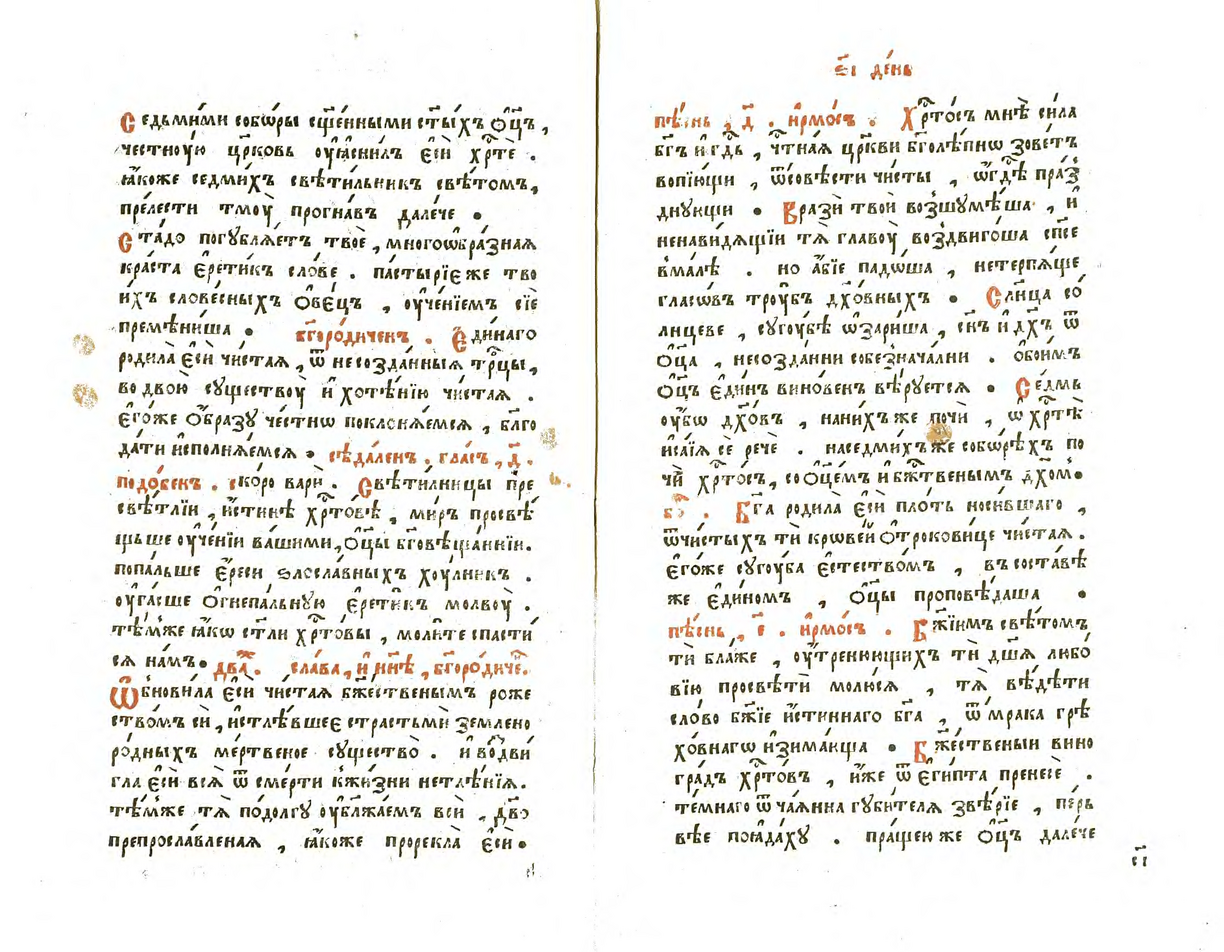 Седьми́ми собѡ́ры сщ҃е́нными ст҃ы́хъ Ѻ҆ц҃ъ,
честноую̀ цр҃ковь оу҆ꙗ҆сни́лъ є҆сѝ хрⷭ҇тѐ .
ꙗ҆́коже седми́хъ свѣти́льникъ свѣ́томъ,
пре́лести тмоу̀ прогна́въ дале́че •
Ста́до погубля́етъ твоѐ , многоѡбра́зная
кра́ста є҆рети́къ сло́ве . па́стырїє же тво
и́хъ слове́сныхъ Ѻ҆ве́цъ , оу҆че́нїемъ сїѐ
премѣни́ша • бг҃оро́диченъ . Є҆ди́наго
родила̀ є҆сѝ чи́стая , ѿ несозда́нныя трⷪ҇цы,
во двою̀ существоу̀ и҆ хотѣ́нїю чи́стая .
є҆го́же Ѻ҆́бразу че́стнѡ покланя́емся , бл҃го
да́ти и҆сполня́емся • сѣда́ленъ . гла́съ , д҃ .
подо́бенъ . ско́ро варѝ . Свѣти́лницы пре
свѣ́тлїи , и҆́стиннѣ хрⷭ҇то́вѣ , ми́ръ просвѣ
щьше оу҆че́нїи ва́шими, Ѻ҆ц҃ы бг҃овѣща́ннїи.
попа́льше є҆́реси ѕлосла́вныхъ хоу́лникъ .
оу҆га́сше Ѻ҆гнепа́льную є҆рети́къ молвоу̀ .
тѣ́мже ꙗ҆́кѡ ст҃ли хрⷭ҇то́вы , моли́те спасти́
ся на́мъ • два́ж. сла́ва, и҆ нн҃ѣ , бг҃оро́диче.
Ѿбнови́ла є҆сѝ чи́стая бж҃е́ственымъ роже
ство́мъ си̑ , и҆стлѣ́вшеє страстьмѝ землено
ро́дныхъ ме́ртвеное существо̀ . и҆ воⷥдви́
гла є҆сѝ вся̀ ѿ сме́рти кжи́зни нетлѣ́нїя.
тѣ́мже тя̀ подо́лгу оу҆блжа́емъ всѝ , дв҃о
препросла́вленая , ꙗ҆́коже прорекла̀ є҆сѝ •
є҃і де́нь
пѣ́снь , д҃ . и҆рмо́съ . Хрⷭ҇то́съ мнѣ̀ си́ла
бг҃ъ и҆ гдⷭ҇ь , чтⷭ҇ная цр҃кви бг҃олѣ́пнѡ зове́тъ
вопїю́щи , ѿсо́вѣсти чи́сты , ѡ҆гдⷭ҇ѣ пра́з
днующи • Вразѝ твоѝ возшумѣ́ша , и҆
ненави́дящїи тя̀ главоу̀ воздвиго́ша сп҃се
вма́лѣ . но а҆́бїе падо́ша , нетерпя́ще
гла́сѡвъ троу́бъ дх҃о́вныхъ • Сл҃нца со́
лицеве , сугоу́бѣ ѡ҆зари́ша , сн҃ъ и҆ дх҃ъ ѿ
Ѻ҆ц҃а , несозда́нни собезнача́лни . ѻ҆бои́мъ
Ѻ҆ц҃ъ є҆ди́нъ вино́венъ вѣ́руется • Се́дмь
оу҆́бѡ дх҃о́въ , нани́хъ же почѝ , ѡ҆ хрⷭ҇тѣ̀
и҆са́їя сѐ речѐ . наседми́хъ же собѡ́рѣхъ по
чѝ хрⷭ҇то́съ, со Ѻ҆ц҃е́мъ и҆ бж҃твенымъ дх҃омъ •
бо҃ . Бг҃а родила̀ є҆сѝ пло́ть носи́вшаго ,
ѿчи́стыхъ тѝ крѡве́й ѻ҆трокови́це чи́стая .
є҆го́же сугоу́ба є҆стество́мъ , въ соста́вѣ
же є҆ди́номъ , Ѻ҆ц҃ы проповѣ́даша •
пѣ́снь , є҃ . и҆рмо́съ . Бж҃їимъ свѣ́томъ
тѝ бла́же , оу҆́тренюющихъ тѝ дш҃я любо́
вїю просвѣтѝ молю́ся , тя̀ вѣ́дѣти
сло́во бж҃їе и҆́стиннаго бг҃а , ѿ мра́ка грѣ
хо́внагѡ и҆зима́юща • Бж҃е́ственыи вино
гра́дъ хрⷭ҇то́въ , и҆́же ѿ є҆ги́пта пренесѐ .
те́мнаго ѿчая́нна губи́теля звѣ́рїе , пе́рь
вѣе пояда́ху . пра́щею же Ѻ҆ц҃ъ дале́че
є҃і